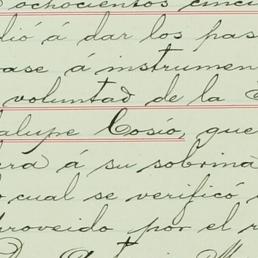 ochocientos cincu
dió á dar los pas
ase á instrumen
voluntad de la
alupe Cosío, que
ra á su sobrina
cual se verificó
proveido por el r